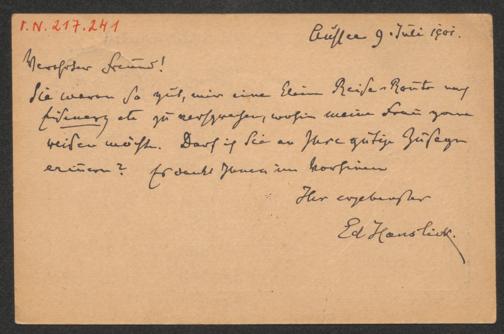 I.N. 217.241
Aussee 9. Juli 1901.
Verehrter Freund!
Sie waren so gut, mir eine kleine Reise-Route nach
Eisenerz etc zu versprechen, wohin meine Frau gerne
reisen möchte. Darf ich Sie an Ihre gütige Zusage
erinnern? Es dankt Ihnen im Vorhinein
Ihr ergebenster
Ed Hanslick.